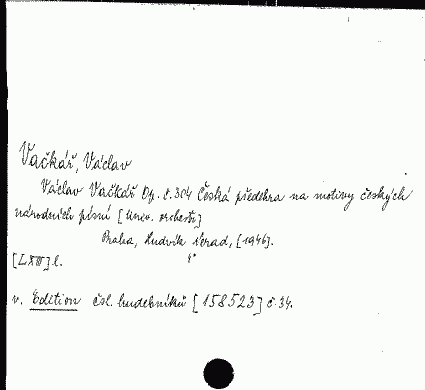 Vačkář, Václav
Václav Vačkář Op. č. 304 Česká předehra na motivy českých
národních písní [Univ. orchestr]
Praha, Ludvík Nerad, [1946].
[LXIII] l. 4°
v. Edition čsl. hudebníků [158523] č. 34.